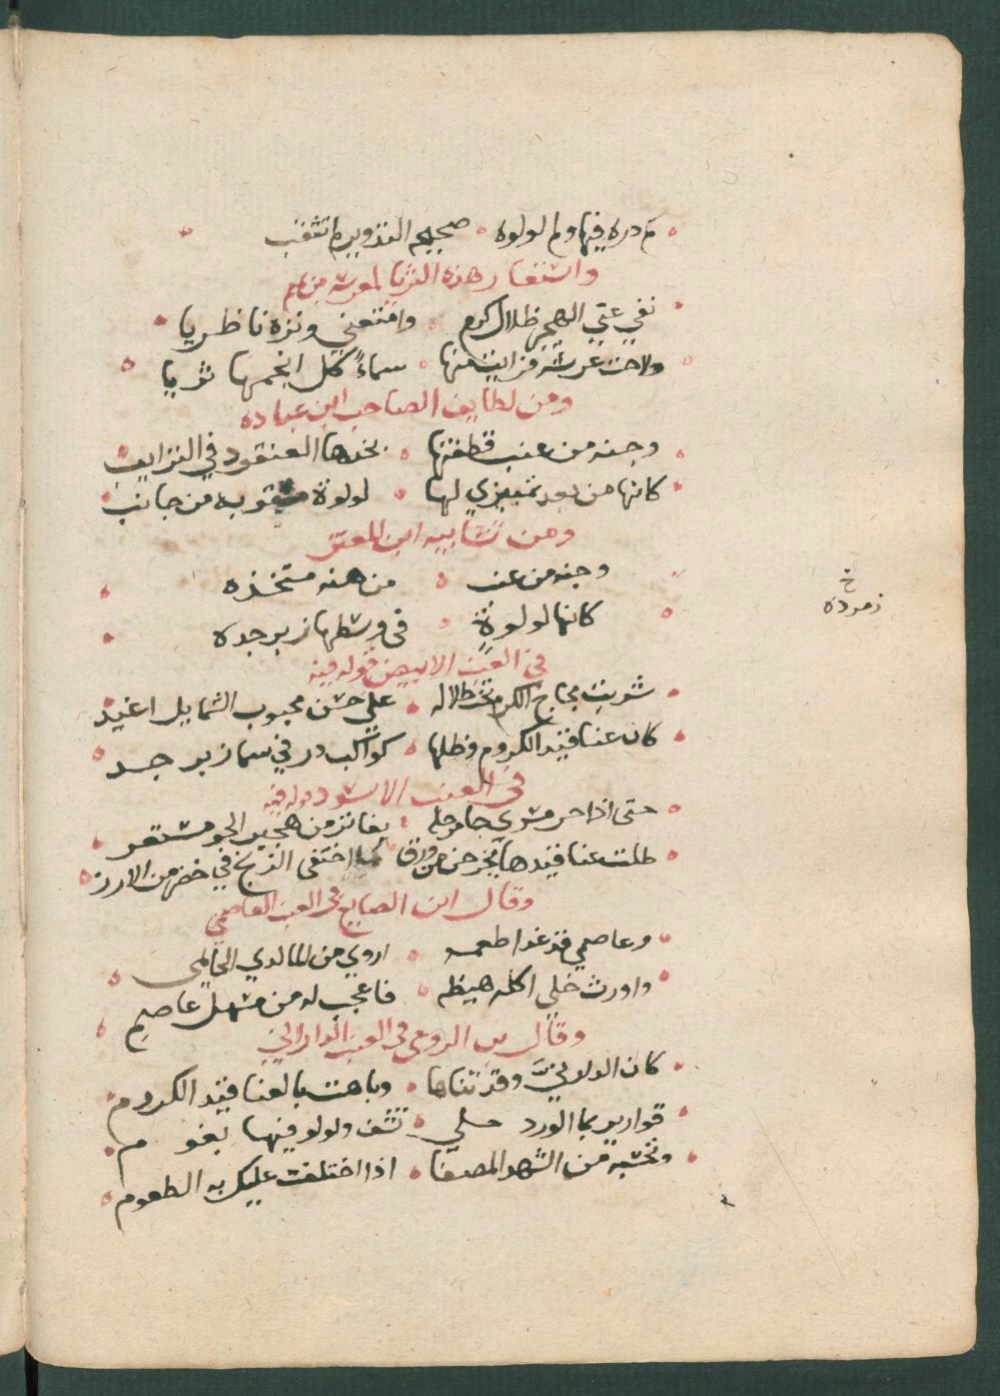 كم دره فيها ولم لولوه صحيحه التدوير لم تثقب
واستعار هذه الثريا لعريشه من كرم
نفي عني الهجير ظلال كرم وامتعني ونزه ناظريا
ولاحت عرشه فرايت منها سماءً كل انجمها ثريا
ومن لطايف الصاحب ابن عباده
وحبه من عنب قطفتها بخدها العنقود في الترايب
كانها من بعد تمييزي لها لولوة مثقوبه من جانب
ومن تشابيه ابن المعتز
وحبه من عنب من هنه متخذه
كانها لولوةٍ في وسطها زبرجده
خ
زمرده
في العنب الابيض قوله فيه
شربت مجاج الكرم تحت ظلاله على حسن محبوب الشمايل اغيد
كان عناقيد الكروم وظلها كواكب در في سما زبرجد
في العنب الاسود وله فيه
حتى اذا حر جا مرجله بفاتر من هجير الجو مستعر
ظلت عناقيدها يخرجن من ورق كما اختفى الزنج في خضر من الازر
وقال ابن الصايغ في العنب العاصمي
وعاصمي قد غدا طعمه اروي من الما لدي الحايم
واورث خلي اكله هيظه فاعجب له من مسهل عاصم
وقال بن الرومي في العنب الداراني
كان الداراني وقد تناها وباهت بالعناقيد الكروم
قوارير بما الورد ملي تشف ولولو فيها يعوم
وتحسبه من الشهد المصفا اذا اختلفت عليك به الطعوم